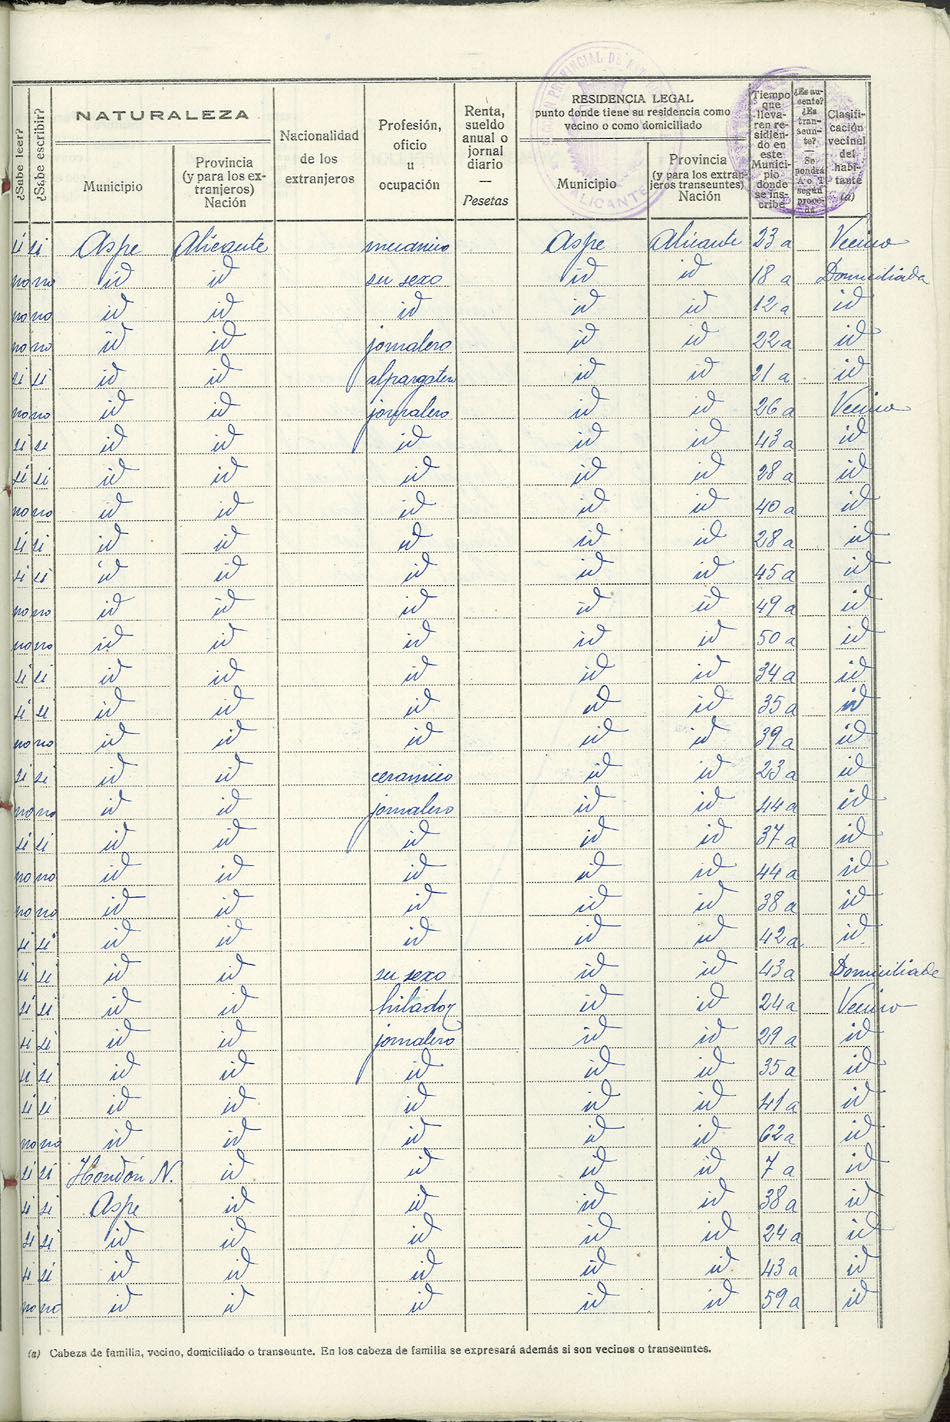 ¿Sabe leer?
¿Sabe escribir?
NATURALEZA
Municipio
Provincia (y para los extranjeros) Nación
Nacionalidad de los extranjeros
Profesión, oficio u ocupación
Renta, sueldo anual o jornal diario — Pesetas
RESIDENCIA LEGAL
punto donde tiene su residencia como vecino o como domiciliado
Municipio
Provincia (y para los extranjeros transeuntes) Nación
Tiempo que llevaren residiendo en este Municipio donde se inscribe
¿Es ausente? ¿Es transeunte? — Se pondrá A o T según proceda
Clasificación vecinal del habitante (a)
si si Aspe Alicante mecanico Aspe Alicante 23 a Vecino
no no id id su sexo id id 18 a Domiciliada
no no id id id id id 12 a id
no no id id jornalero id id 22 a id
si si id id alpargatero id id 21 a id
no no id id jornalero id id 26 a Vecino
si si id id id id id 43 a id
si si id id id id id 28 a id
no no id id id id id 40 a id
si si id id id id id 28 a id
si si id id id id id 45 a id
no no id id id id id 49 a id
no no id id id id id 50 a id
si si id id id id id 34 a id
si si id id id id id 35 a id
no no id id id id id 39 a id
si si id id ceramico id id 23 a id
no no id id jornalero id id 44 a id
si si id id id id id 37 a id
no no id id id id id 44 a id
no no id id id id id 38 a id
si si id id id id id 42 a id
si si id id su sexo id id 43 a Domiciliada
si si id id hilador id id 24 a Vecino
si si id id jornalero id id 29 a id
si si id id id id id 35 a id
si si id id id id id 41 a id
no no id id id id id 62 a id
si si Hondón N. id id id id 7 a id
si si Aspe id id id id 38 a id
si si id id id id id 24 a id
si si id id id id id 43 a id
no no id id id id id 59 a id
(a) Cabeza de familia, vecino, domiciliado o transeunte. En los cabeza de familia se expresará además si son vecinos o transeuntes.